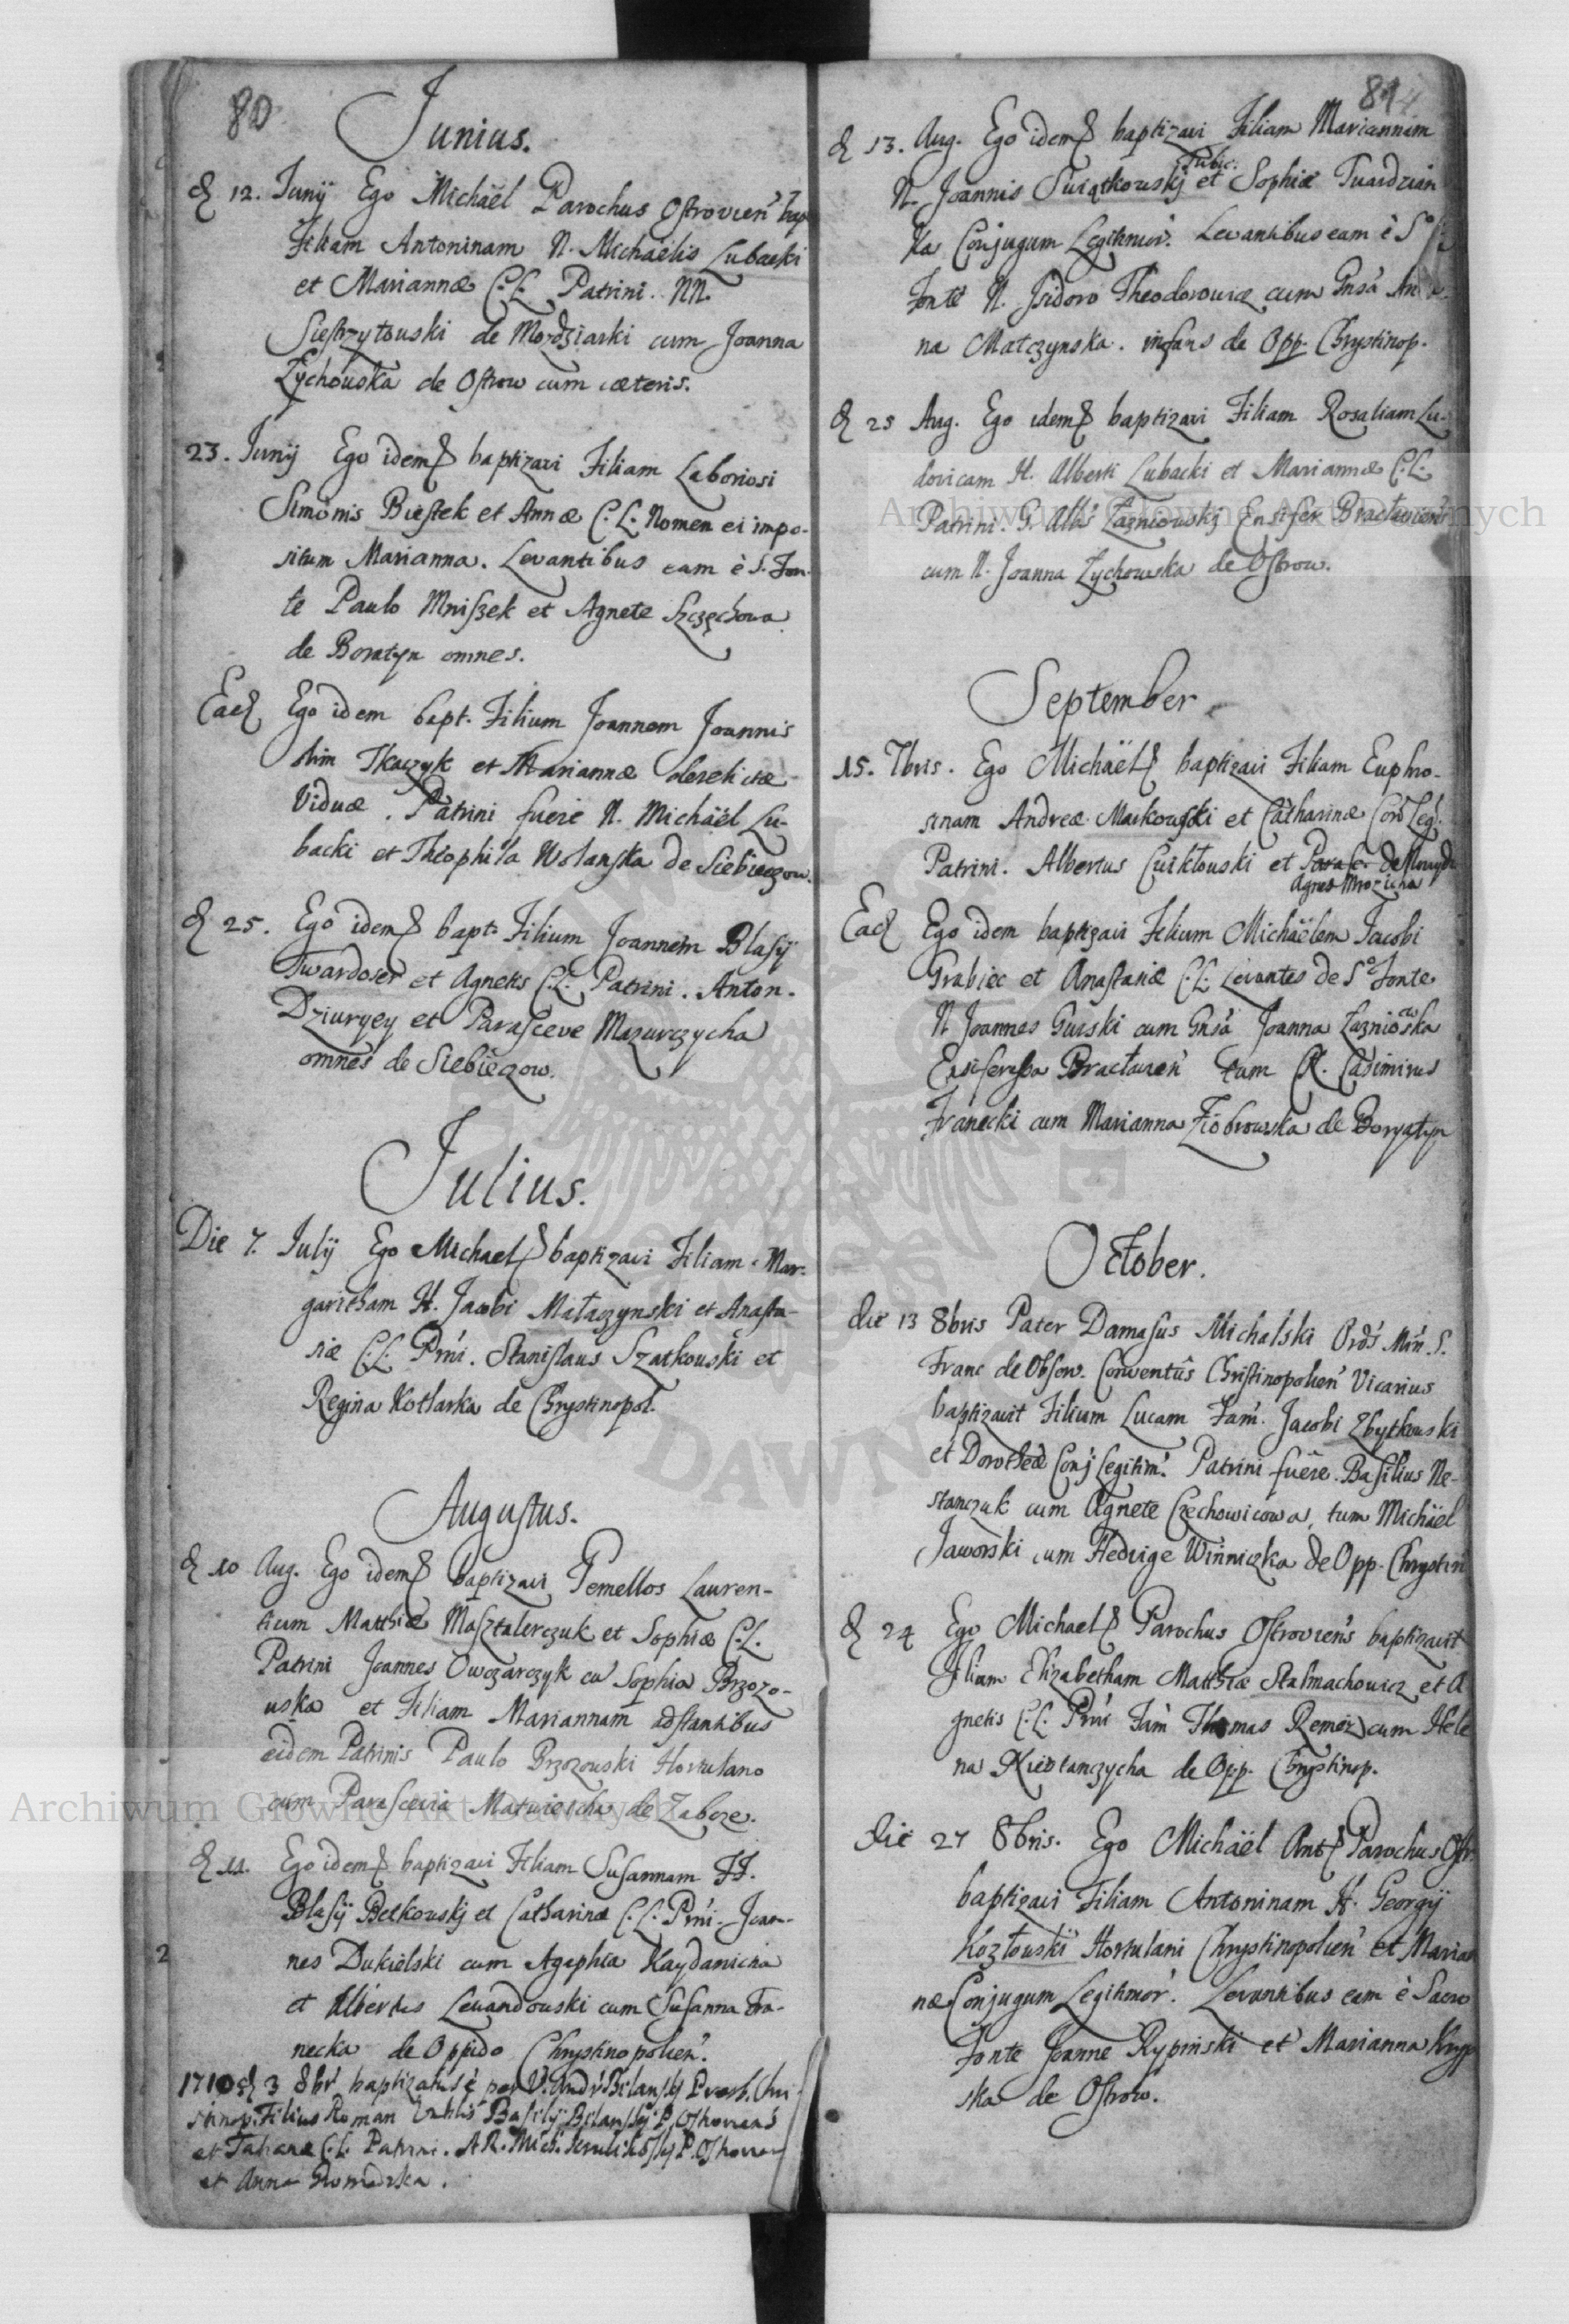 80
Junius.
d 12. Junij Ego Michaël Parochus Ostrovien bap
Filiam Antoninam N. Michaëlis Lubacki
et Mariannæ C.L. Patrini. NN.
Siestrzytowski de Mozdziarki cum Joanna
Zychowska de Ostrow cum cæteris.
23. Junij Ego idem baptizavi Filiam Laboriosi
Simonis Biestek et Annæ C.L. Nomen ei impo-
situm Marianna. Levantibus eam è S. Fon-
te Paulo Mniszek et Agnete Szczęchowa
de Boratyn omnes.
Ead Ego idem bapt. Filium Joannem Joannis
olim Tkaczyk et Mariannæ derelictæ
Viduæ. Patrini fuere N. Michaël Lu-
backi et Theophila Wolanska de Siebieczow.
d 25. Ego idem bapt. Filium Joannem Blasij
Twardoser et Agnetis C.L. Patrini. Anton.
Dziuryey et Parasceve Mazurczycha
omnes de Siebieczow.
Julius.
Die 7. Julij Ego Michael baptizavi Filiam Mar-
garitham H. Jacobi Mataczynski et Anasta-
siæ C.L. Prni. Stanislaus Szatkowski et
Regina Kotlarka de Chrystinopol.
Augustus.
d 10 Aug. Ego idem baptizavi Gemellos Lauren-
tium Matthiæ Masztalerczuk et Sophiæ C.L.
Patrini Joannes Owczarczyk cu Sophia Brzozo-
wska et Filiam Mariannam adstantibus
eidem Patrinis Paulo Brzozowski Hortulano
cum Parascevia Matwieicha de Zabcze.
d 11. Ego idem baptizavi Filiam Susannam FF.
Blasij Betkowskj et Catharinæ C.L. Prni. Joan-
nes Dukielski cum Agaphia Kaydanicha
et Albertus Lewandowski cum Susanna Fra-
necka de Oppido Chrystinopolien.
2
1710 d 3 8br baptizatus è per V. Andr. Bilanskj Presb. Chri-
stinop. Filius Roman Basilij Bilanskj P. Ostroviens
et Tatianæ C.L. Patrini. A.R. Mich. P. Ostrovien
et Anna Gromadzka.
81
d 13. Aug. Ego idem baptizavi Filiam Mariannam
N. Joannis Swiątkowskj et Sophiæ Twardzian
ka Conjugum Legitimor. Levantibus eam è So
Fonte N. Isidoro Theodorowicz cum Gnsa An
na Matczynska. infans de Opp. Chrystinop.
d 25 Aug. Ego idem baptizavi Filiam Rosaliam Lu-
dovicam H. Alberti Lubacki et Mariannæ C.L.
Patrini. G. Albs Łazniowskj Ensifer Bractavien
cum N. Joanna Zychowska de Ostrow.
September
15. 7bris. Ego Michaël baptizavi Filiam Euphro-
sinam Andreæ Markowski et Catharinæ Con Leg.
Patrini. Albertus Cwikłowski et
Agnes Mrozicha
Ead Ego idem baptizavi Filium Michaëlem Jacobi
Grabiec et Anastasiæ C.L. Levantes de So Fonte
N Joannes Gurski cum Gnsa Joanna Łazniowska
Ensiferissa Bractavien tum N. Casimirus
Franecki cum Marianna Ziobrowska de Boryatyn
October.
die 13 8bris Pater Damasus Michalski Ords Min. S.
Franc de Observ. Conventûs Christinopolien Vicarius
baptizavit Filium Lucam Fam. Jacobi Zbytkowski
et Dorotheæ Conj Legitim. Patrini fuêre. Basilius Ne-
stanczuk cum Agnete Czechowicowa, tum Michäel
Jaworski cum Hedvige Winniczka de Opp. Chrystin
d 24 Ego Michael Parochus Ostroviens baptizavit
Filiam Elizabetham Matthiæ Stalmachowicz et A
gnetis C.L. Prni Fam Thomas Remez cum Hele
na Kiedłanczycha de Opp. Chrystinop.
die 27 8bris. Ego Michäel Ant Parochus Ostr
baptizavi Filiam Antoninam H. Georgij
Kozłowski Hortulani Chrystinopolien et Marian
næ Conjugum Legitimor. Levantibus eam è Sacro
Fonte Joanne Rypinski et Marianna Kryp
ska de Ostrow.
Archiwum Główne Akt Dawnych
Archiwum Główne Akt Dawnych